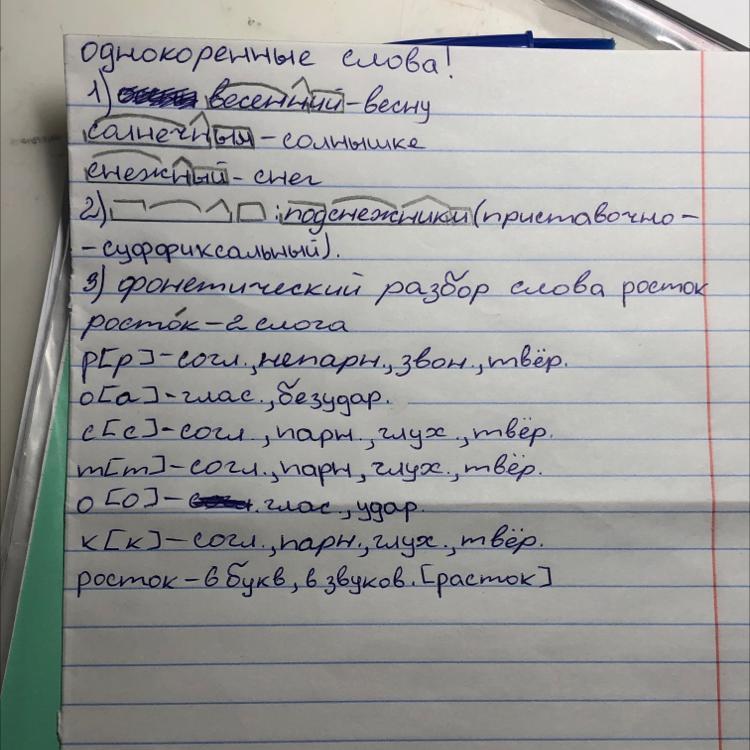 однокоренные слова!
1) весенний - весну
солнечный - солнышке
снежный - снег
2) : подснежники (приставочно-
- суффиксальный).
3) фонетический разбор слова росток
росто́к - 2 слога
р [р] - согл., непарн., звон., твёр.
о [а] - глас., безудар.
с [с] - согл., парн., глух., твёр.
т [т] - согл., парн, глух., твёр.
о [о] - глас., удар.
к [к] - согл., парн., глух., твёр.
росток - 6 букв, 6 звуков. [расток]